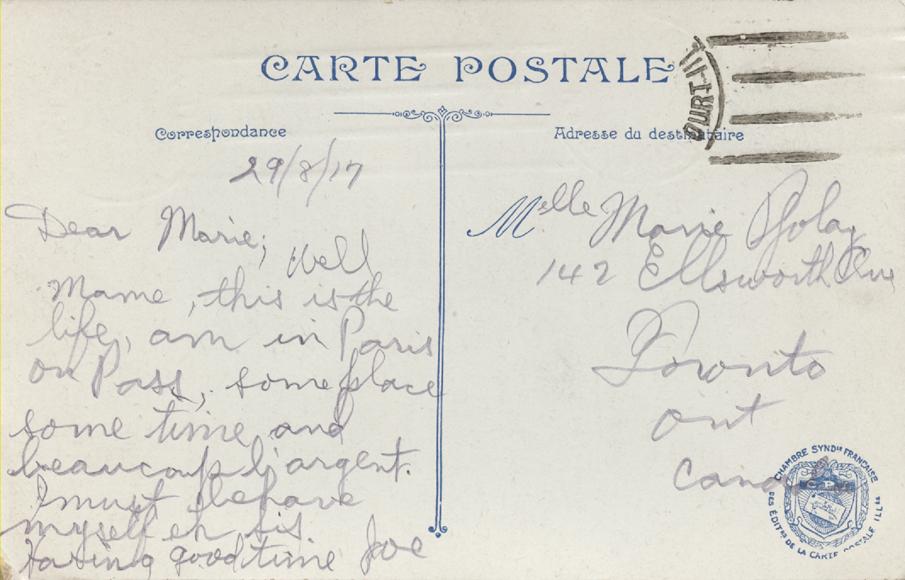 CARTE POSTALE
Correspondance
Adresse du destinataire
29/8/17
Dear Marie; Well
Mame, this is the
life, am in Paris
on Pass, some place
some time and
beaucoup l'argent.
I must behave
myself eh sis
having good time Joe
Melle Marie
142 Ellsworth Ave
Toronto
Ont
Canada
CHAMBRE SYNDLE FRANÇAISE
DES ÉDITRS DE LA CARTE POSTALE ILLée